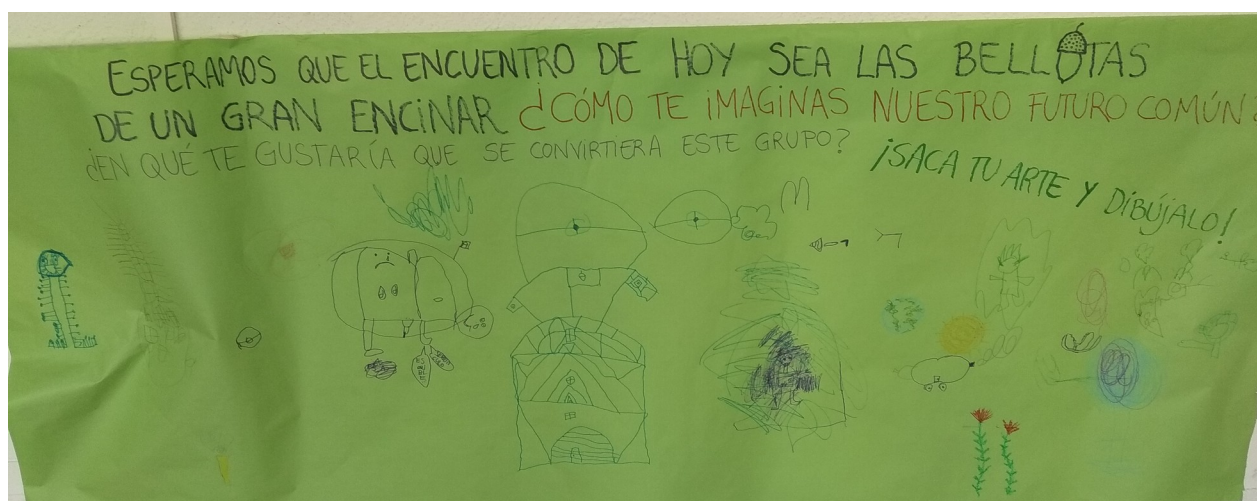 ESPERAMOS QUE EL ENCUENTRO DE HOY SEA LAS BELLOTAS
DE UN GRAN ENCINAR ¿CÓMO TE IMAGINAS NUESTRO FUTURO COMÚN?
¿EN QUÉ TE GUSTARÍA QUE SE CONVIRTIERA ESTE GRUPO?
¡SACA TU ARTE Y DIBÚJALO!